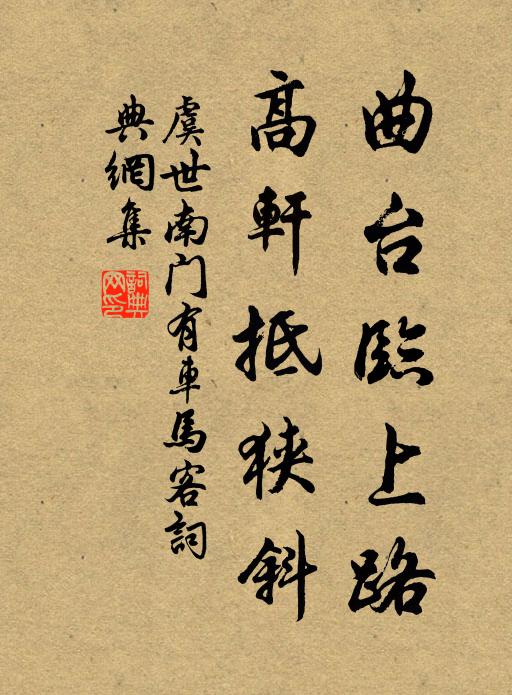 曲台臨上路
高軒抵狹斜
虞世南门有車馬客詞
典網集
詞典网印